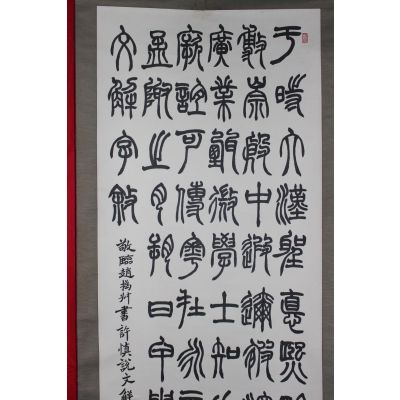 于時大漢聖德熙
敷崇殷中遐邇被
廣業甄微學士知
厥誼可傳粵在永
孟陬之月朔日甲
文解字敘
敬臨趙撝叔書許慎說文解